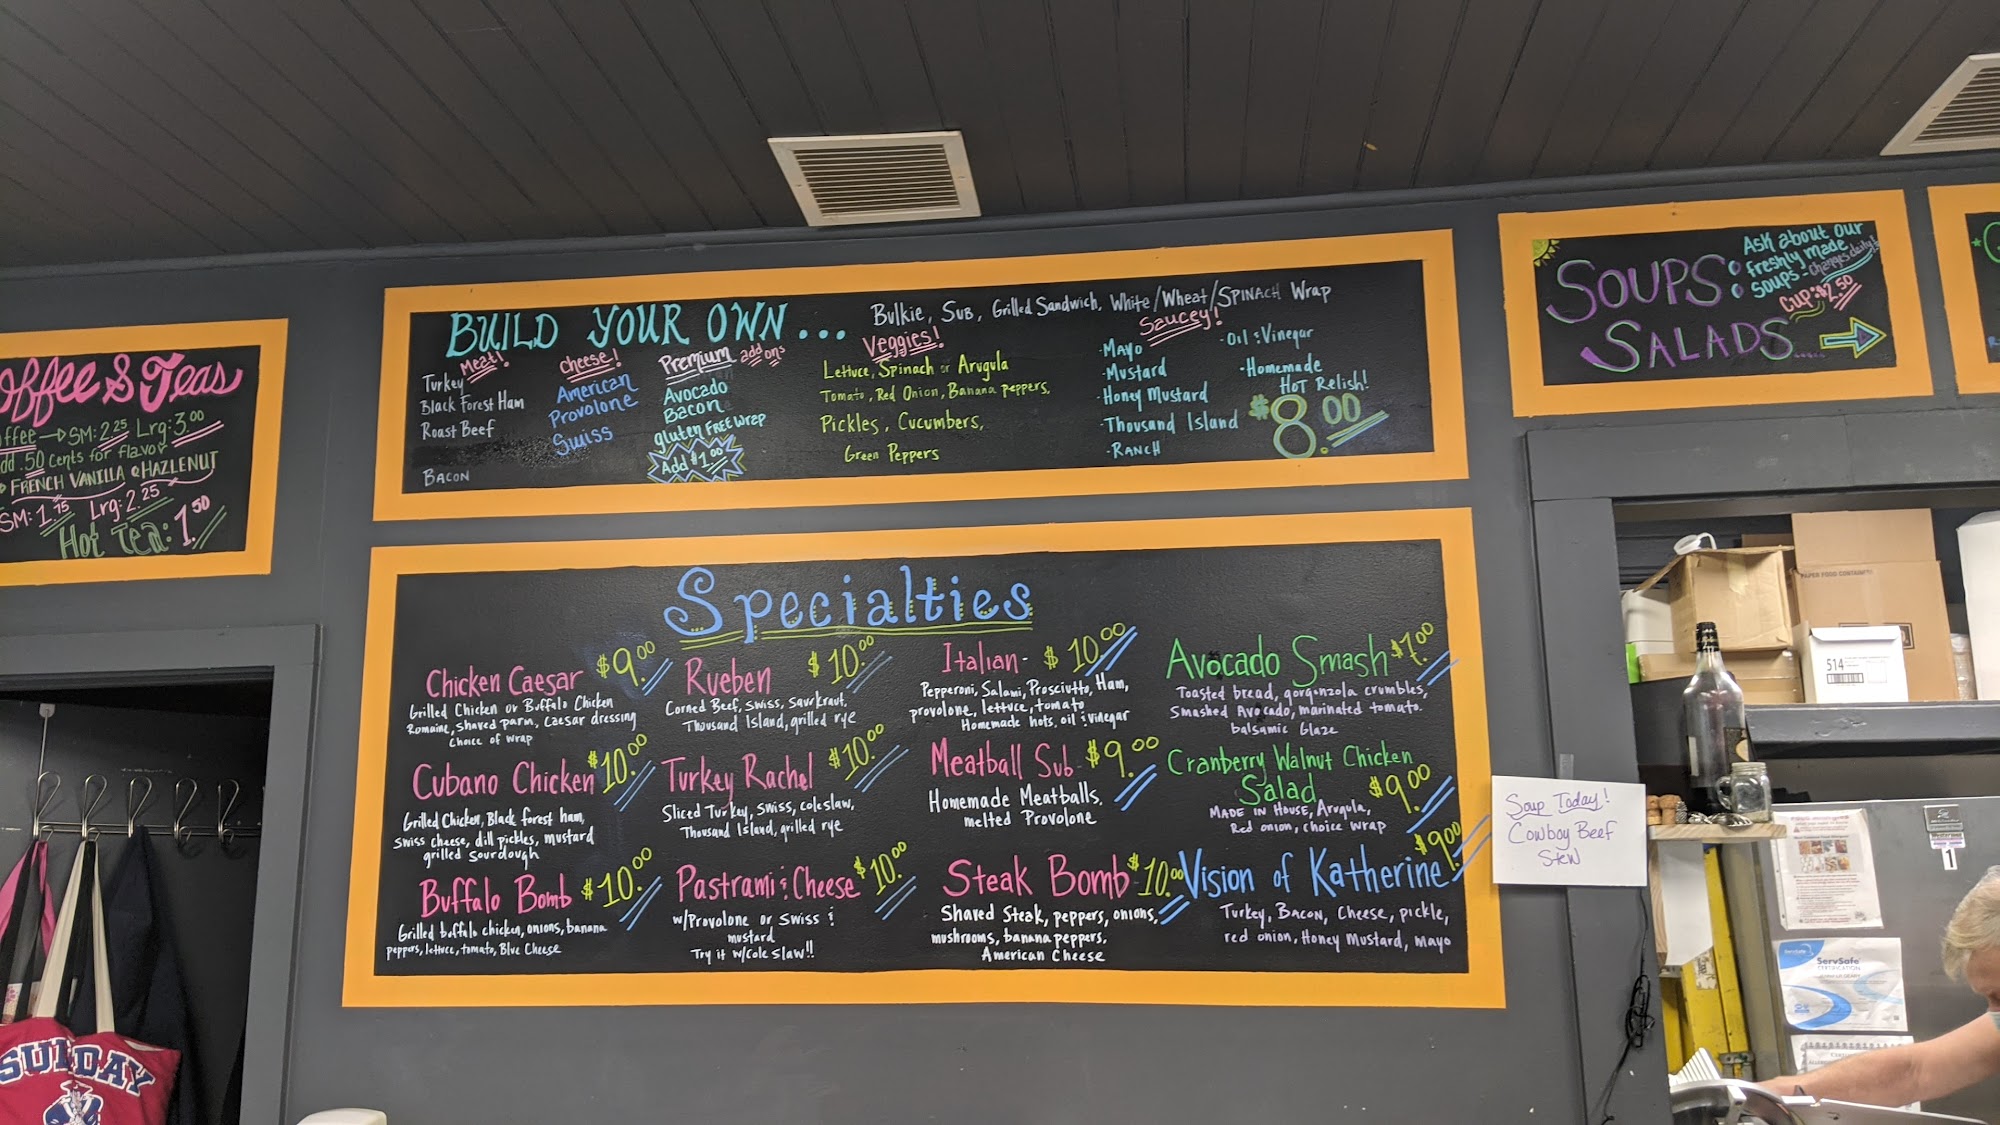 Coffee & Teas
Coffee → SM: 2.25 Lrg: 3.00
Add .50 cents for flavor
FRENCH VANILLA & HAZLENUT
SM: 1.75 Lrg: 2.25
Hot Tea: 1.50
BUILD YOUR OWN...
Bulkie, Sub, Grilled Sandwich, White/Wheat/SPINACH Wrap
Meat!
Turkey
Black Forest Ham
Roast Beef
BACON
Cheese!
American
Provolone
Swiss
Premium add ons
Avocado
Bacon
gluten FREE wrap
Add $1.00
Veggies!
Lettuce, Spinach or Arugula
Tomato, Red Onion, Banana peppers,
Pickles, Cucumbers,
Green Peppers
Saucey!
-Mayo
-Mustard
-Honey Mustard
-Thousand Island
-RANCH
-Oil & Vinegar
-Homemade
HOT RELISH!
$8.00
SOUPS:
Ask about our
freshly made
soups - changes daily!
Cup: $2.50
SALADS.....
Specialties
Chicken Caesar $9.00
Grilled Chicken or Buffalo Chicken
Romaine, shaved parm, caesar dressing
choice of wrap
Rueben $10.00
Corned Beef, Swiss, Saurkraut,
Thousand Island, grilled rye
Italian- $10.00
Pepperoni, Salami, Prosciutto, Ham,
provolone, lettuce, tomato
Homemade hots, oil & vinegar
Avocado Smash $7.00
Toasted bread, gorgonzola crumbles,
Smashed Avocado, marinated tomato.
balsamic Glaze
Cubano Chicken $10.00
Grilled Chicken, Black forest ham,
Swiss cheese, dill pickles, mustard
grilled sourdough
Turkey Rachel $10.00
Sliced Turkey, swiss, coleslaw,
Thousand Island, grilled rye
Meatball Sub- $9.00
Homemade Meatballs,
melted Provolone
Cranberry Walnut Chicken
Salad $9.00
MADE IN HOUSE, Arugula,
Red onion, choice wrap
Buffalo Bomb $10.00
Grilled buffalo chicken, onions, banana
peppers, lettuce, tomato, Blue Cheese
Pastrami & Cheese $10.00
w/Provolone or Swiss &
mustard
Try it w/coleslaw!!
Steak Bomb $10.00
Shaved Steak, peppers, onions,
mushrooms, banana peppers,
American Cheese
Vision of Katherine $9.00
Turkey, Bacon, Cheese, pickle,
red onion, Honey Mustard, mayo
Soup Today!
Cowboy Beef
Stew
514
PAPER FOOD CONTAINER
ServSafe
CERTIFICATION
1
SUNDAY